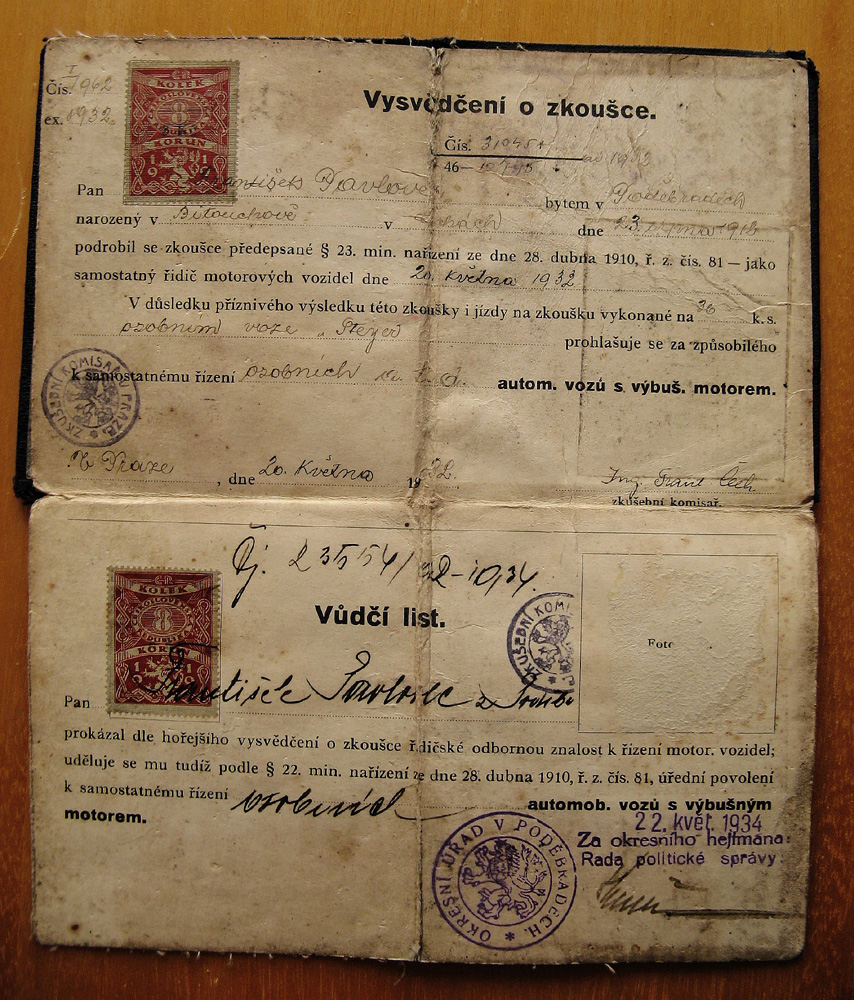 Čís. I/1962
ex. 1932.
KOLEK
8
KORUN
1919
Vysvědčení o zkoušce.
Čís. 31045
46—
1932
Pan František Pavlovec bytem v Poděbradech
narozený v v Čechách dne 23.
podrobil se zkoušce předepsané § 23. min. nařízení ze dne 28. dubna 1910, ř. z. čís. 81 — jako
samostatný řidič motorových vozidel dne 20. května 1932
V důsledku příznivého výsledku této zkoušky i jízdy na zkoušku vykonané na 30 k. s.
osobním voze „Steyer" prohlašuje se za způsobilého
k samostatnému řízení osobních autom. vozů s výbuš. motorem.
ZKUŠEBNÍ KOMISAŘ PRAZE
V Praze, dne 20. května 1932.
Ing. Čech
zkušební komisař.
Čj. 23554/32-10,34.
KOLEK
8
KORUN
1919
Vůdčí list.
ZKUŠEBNÍ KOMI
Foto
Pan František Pavlovec z
prokázal dle hořejšího vysvědčení o zkoušce řidičské odbornou znalost k řízení motor. vozidel;
uděluje se mu tudíž podle § 22. min. nařízení ze dne 28. dubna 1910, ř. z. čís. 81, úřední povolení
k samostatnému řízení osobních automob. vozů s výbušným
motorem.
22. květ. 1934
Za okresního hejtmana:
Rada politické správy:
OKRESNÍ ÚŘAD V PODĚBRADECH. *